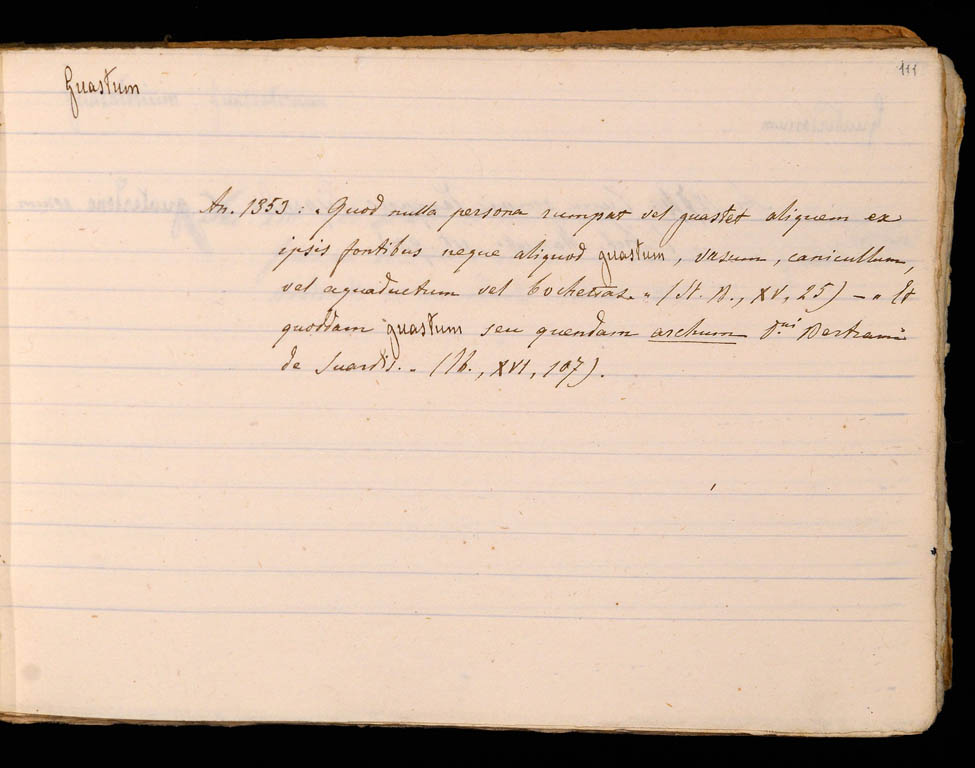 111
Guastum
An. 1353: "Quod nulla persona rumpat vel guastet aliquem ex
ipsis fontibus neque aliquod guastum, vasum, canicullum,
vel aquaductum vel bochettas." (St. B., XV, 25) – "Et
quoddam guastum seu quendam archum d.ni Bertrami
de Suardis." (Ib., XVI, 107).